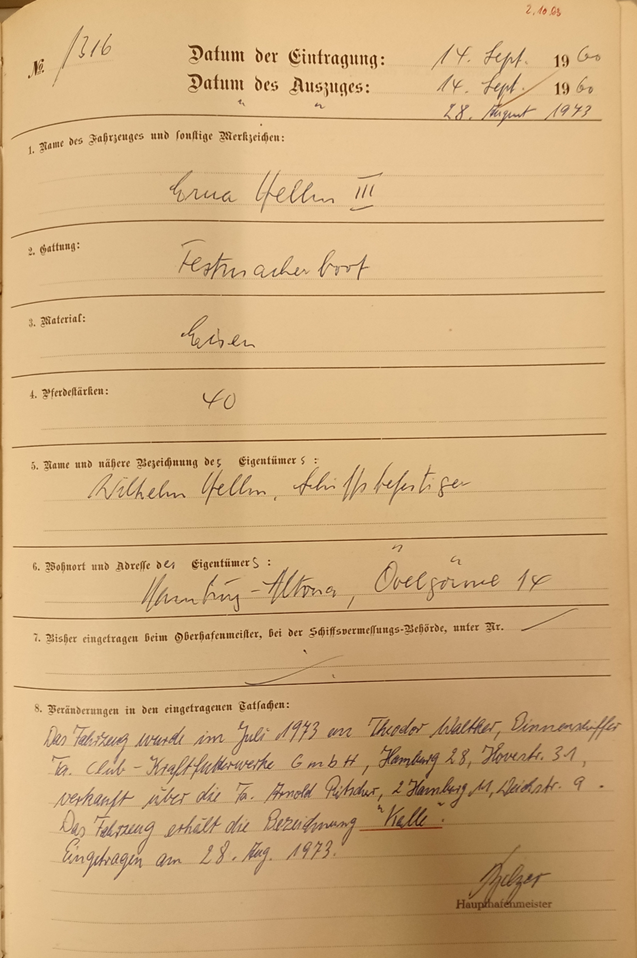 2.10.03
No. 1316
Datum der Eintragung: 14. Sept. 1960
Datum des Auszuges: 14. Sept. 1960
" " 28. August 1973
1. Name des Fahrzeuges und sonstige Merkzeichen:
Erna Hellm III
2. Gattung:
Festmacherboot
3. Material:
Eisen
4. Pferdestärken:
40
5. Name und nähere Bezeichnung des Eigentümers:
Wilhelm Hellm, Schiffsbefestiger
6. Wohnort und Adresse des Eigentümers:
Hamburg-Altona, Övelgönne 14
7. Bisher eingetragen beim Oberhafenmeister, bei der Schiffsvermessungs-Behörde, unter Nr.
8. Veränderungen in den eingetragenen Tatsachen:
Das Fahrzeug wurde im Juli 1973 an Theodor Walther, Binnenschiffer
Fa. Club-Kraftfutterwerke GmbH, Hamburg 28, Hovestr. 31,
verkauft über die Fa. Arnold Ritscher, 2 Hamburg 11, Deichstr. 9.
Das Fahrzeug erhält die Bezeichnung "Kalle".
Eingetragen am 28. Aug. 1973.
Hauphafenmeister